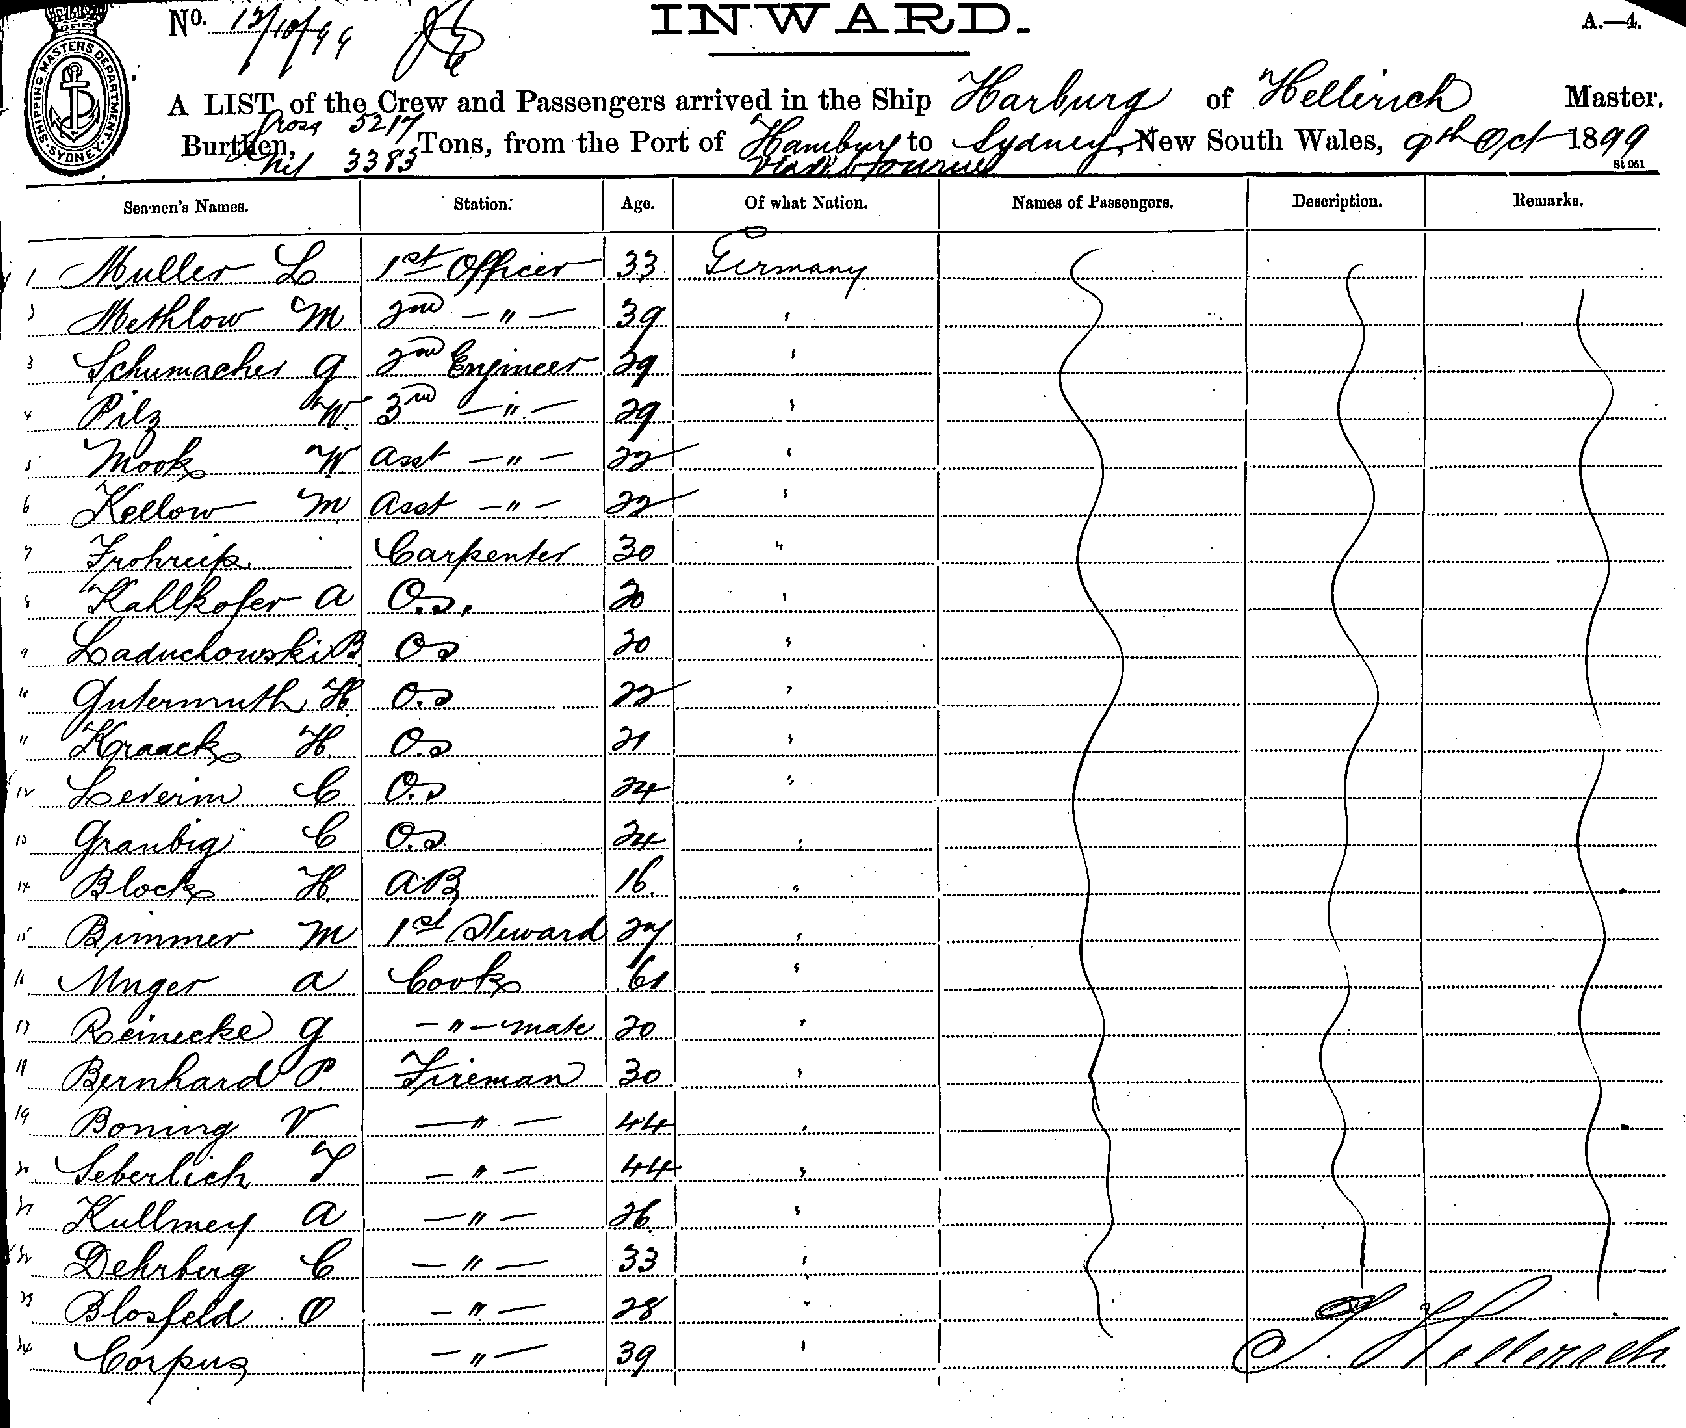 No. 12/10/99
INWARD.
A.—4.
SHIPPING MASTERS DEPARTMENT
SYDNEY
A LIST of the Crew and Passengers arrived in the Ship Harburg of Hellerich Master.
Gross 5217
Burthen, Tons, from the Port of Hamburg to Sydney, New South Wales, 9th Oct 1899
Net 3383 via Melbourne
Seamen's Names. Station. Age. Of what Nation. Names of Passengers. Description. Remarks.
1 Muller L 1st Officer 33 Germany
2 Methlow M 2nd — " — 39 "
3 Schumacher G 2nd Engineer 29 "
4 Pilz W 3rd — " — 29 "
5 Mook W Asst — " — 22 "
6 Kellow M Asst — " — 22 "
7 Frohreip Carpenter 30 "
8 Kahlkofer A O.S. 20 "
9 Laduchowski B OS 20 "
10 Gutermuth H O.S 22 "
11 Kraack H O.S 21 "
12 Leverin C O.S 24 "
13 Graubig C O.S 24 "
14 Block H AB 16 "
15 Bimmer M 1st Steward 27 "
16 Unger A Cook 61 "
17 Reinecke G — " — mate 20 "
18 Bernhard P Fireman 30 "
19 Boning V — " — 44 "
20 Seberlich T — " — 44 "
21 Kullmey A — " — 26 "
22 Dehrberg C — " — 33 "
23 Blosfeld O — " — 28 "
24 Corpus — " — 39 "
Hellerich